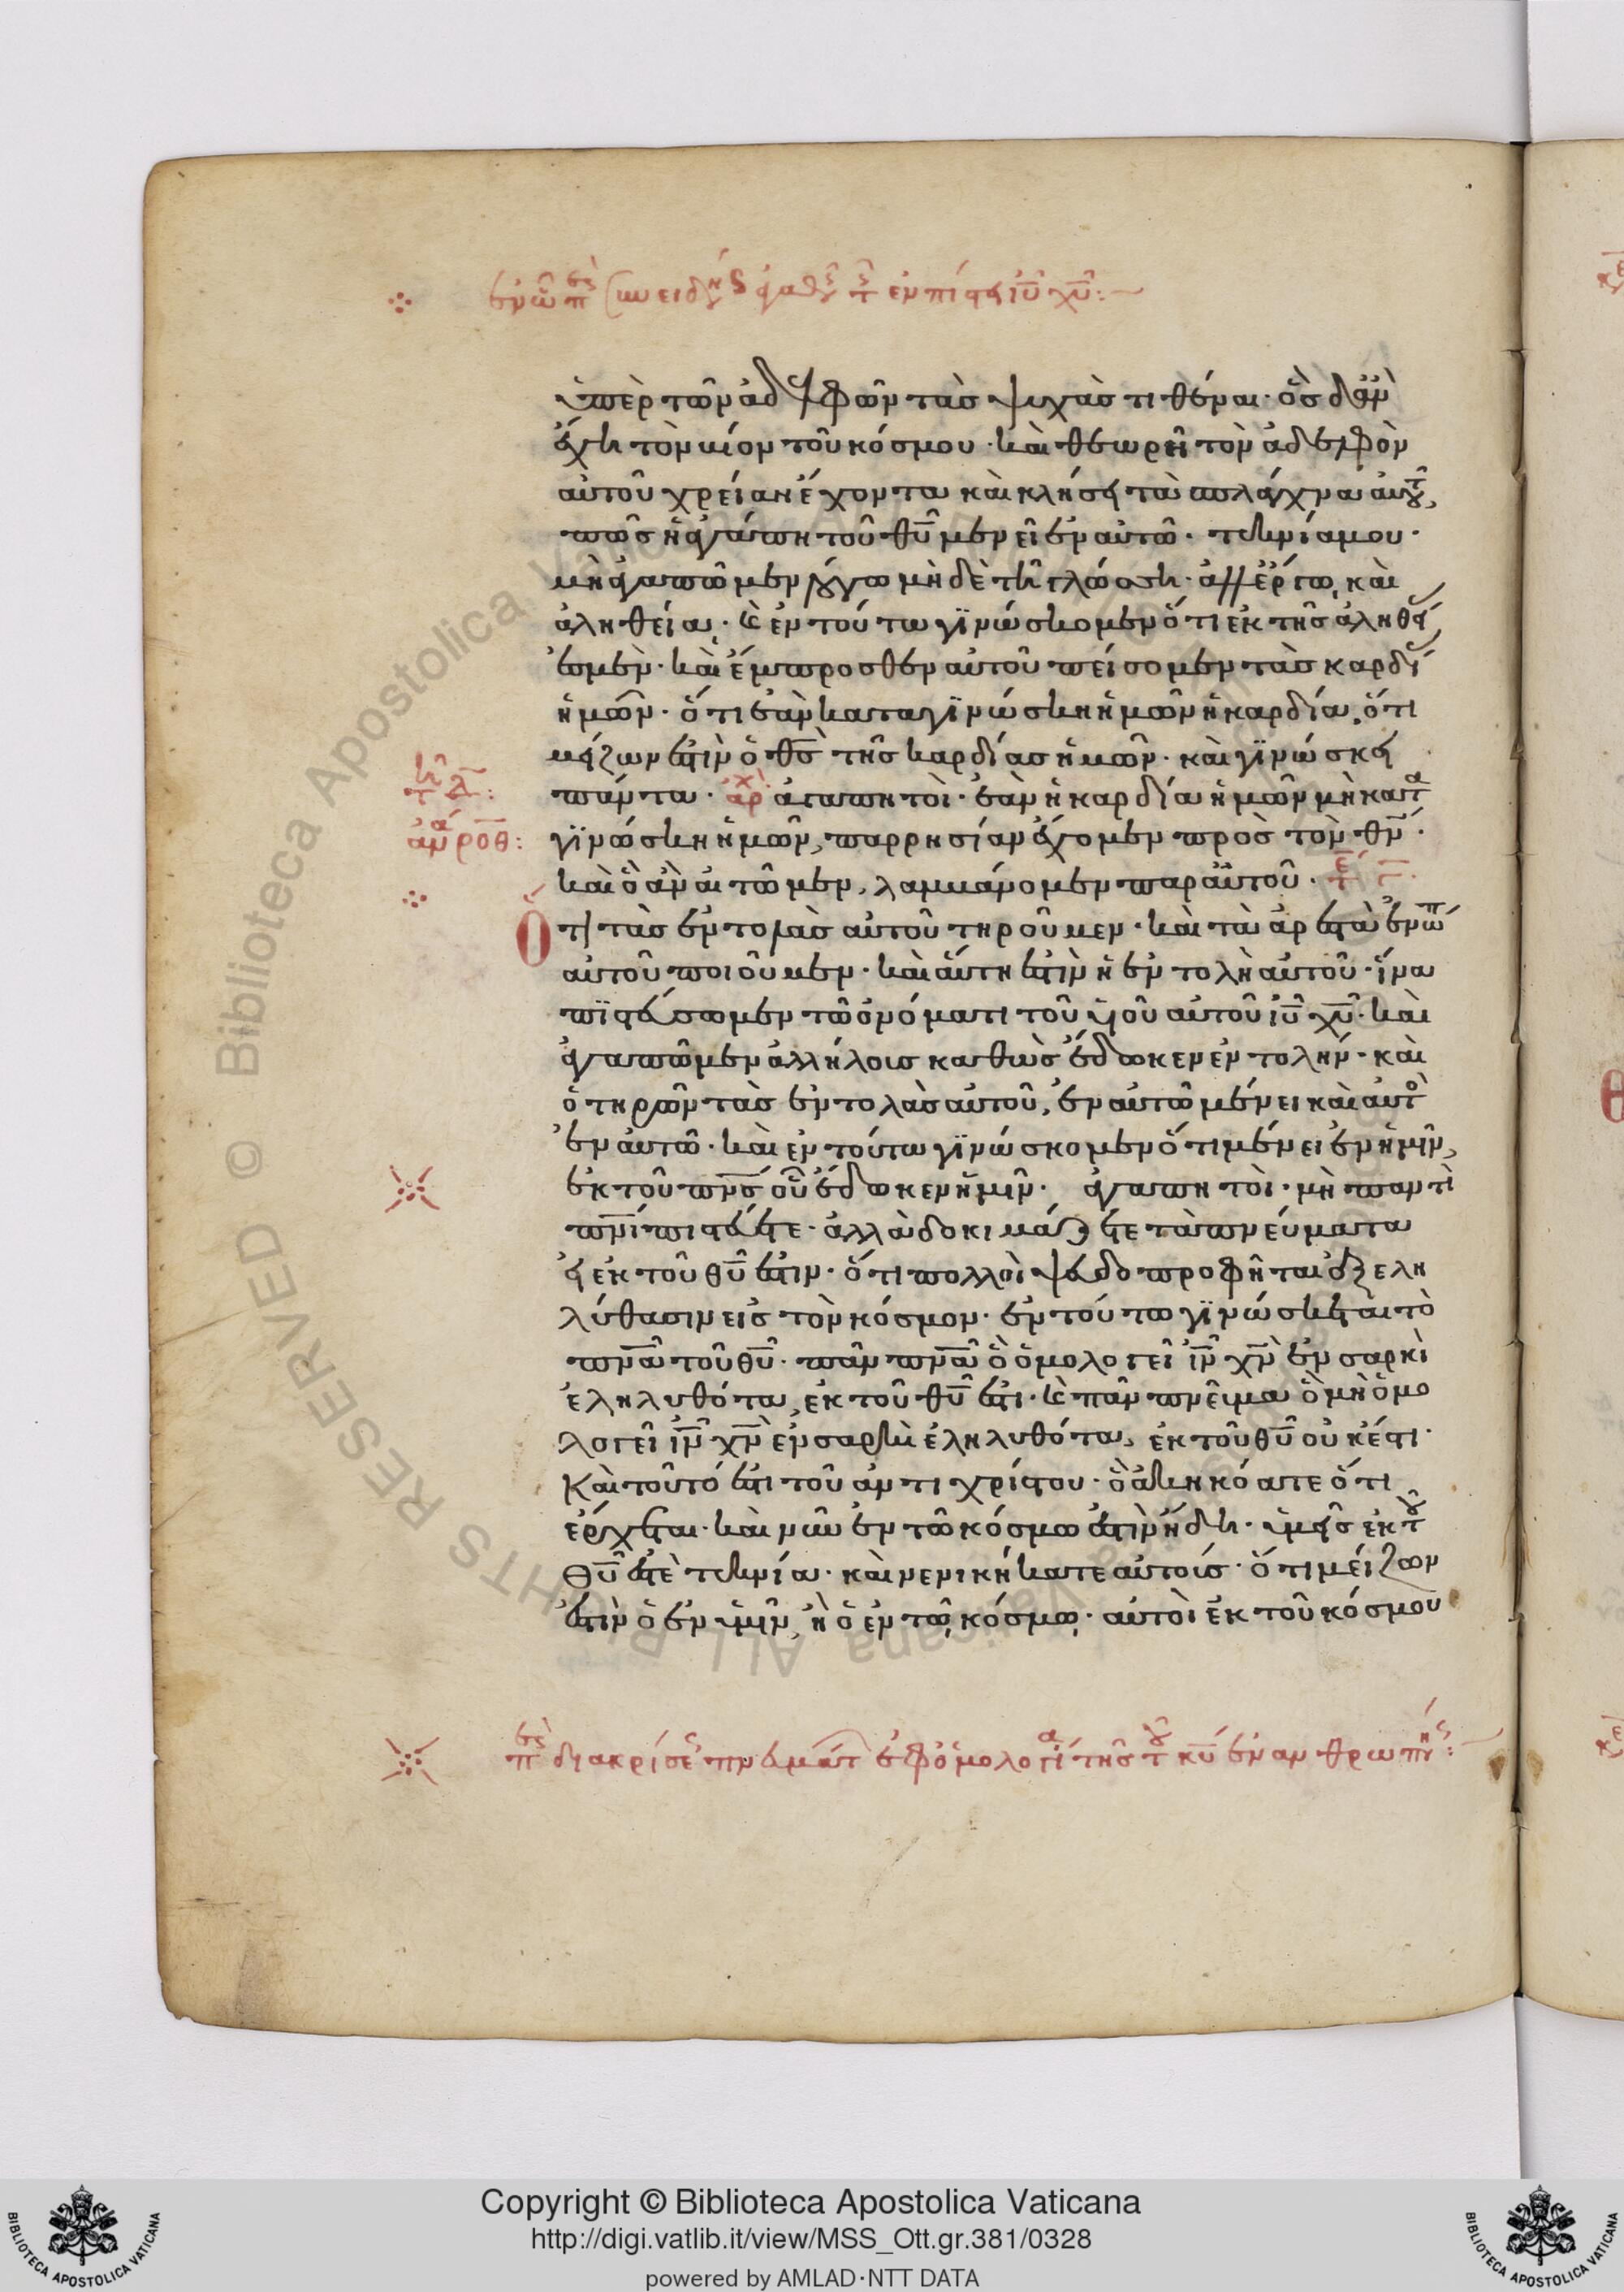 ὑπὲρ τῶν ἀδελφῶν τὰς ψυχὰς τιθέναι· ὃς δ' ἂν
ἔχη τὸν βίον τοῦ κόσμου· καὶ θεωρῆ τὸν ἀδελφὸν
αὐτοῦ χρείαν ἔχοντα καὶ κλήσει τὰ σπλάγχνα αὐτοῦ,
πῶς ἡ ἀγάπη τοῦ θῦ μένει ἐν αὐτῶ· τεκνία μου·
μὴ ἀγαπῶμεν λόγω μὴ δὲ τῆ γλώσση· ἀλλ' ἔργω, καὶ
ἀληθεία· καὶ ἐν τούτω γϊνώσκομεν ὅτι ἐκ τῆς ἀληθεί
ἐσμὲν· καὶ ἔμπροσθεν αὐτοῦ πείσομεν τὰς καρδί
ἡμῶν· ὅτι ἐὰν καταγϊνώσκη ἡμῶν ἡ καρδία, ὅτι
μείζων ἐστὶν ὁ θς τῆς καρδίας ἡμῶν· καὶ γϊνώσκει
πάντα· ἀρχ ἀγαπητοὶ· ἐὰν ἡ καρδία ἡμῶν μὴ κατα
γϊνώσκη ἡμῶν, παρρησίαν ἔχομεν πρὸς τὸν θν·
καὶ ὃ ἂν αἰτῶμεν, λαμβάνομεν παρ' αὐτοῦ·
Ὅτι τὰς ἐντολὰς αὐτοῦ τηροῦμεν· καὶ τὰ ἀρεστὰ ἐνωπ
αὐτοῦ ποιοῦμεν· καὶ αὕτη ἐστὶν ἡ ἐντολὴ αὐτοῦ· ἵνα
πϊστεύσωμεν τῶ ὀνόματι τοῦ υἱοῦ αὐτοῦ ιυ χυ· καὶ
ἀγαπῶμεν ἀλλήλοις καθὼς ἔδωκεν ἐντολήν· καὶ
ὁ τηρῶν τὰς ἐντολὰς αὐτοῦ, ἐν αὐτῶ μένει καὶ αὐτὸ
ἐν αὐτῶ· καὶ ἐν τούτω γϊνώσκομεν ὅτι μένει ἐν ἡμῖν,
ἐκ τοῦ πνς οὗ ἔδωκεν ἡμῖν· ἀγαπητοὶ· μὴ παντὶ
πνι πιστεύετε· ἀλλὰ δοκιμάζετε τὰ πνεύματα
εἰ ἐκ τοῦ θυ ἐστιν· ὅτι πολλοὶ ψευδοπροφῆται ἐξελη
λύθασιν εἰς τὸν κόσμον· ἐν τούτω γϊνώσκεται τὸ
πνα τοῦ θυ· πᾶν πνα ὃ ὁμολογεῖ ιν χν ἐν σαρκὶ
ἐληλυθότα, ἐκ τοῦ θυ ἐστι· καὶ πᾶν πνεῦμα ὃ μὴ ὁμο
λογεῖ ιν χν ἐν σαρκὶ ἐληλυθότα, ἐκ τοῦ θυ οὐκ ἔστι·
καὶ τοῦτό ἐστι τοῦ ἀντιχρίστου· ὃ ἀκηκόατε ὅτι
ἔρχεται· καὶ νῦν ἐν τῶ κόσμω ἐστὶν ἤδη· ὑμεῖς ἐκ τοῦ
θυ ἐστὲ τεκνία· καὶ νενικήκατε αὐτούς· ὅτι μείζων
ἐστὶν ὁ ἐν ὑμῖν, ἢ ὁ ἐν τῶ κόσμω· αὐτοὶ ἐκ τοῦ κόσμου
Copyright © Biblioteca Apostolica Vaticana
http://digi.vatlib.it/view/MSS_Ott.gr.381/0328
powered by AMLAD·NTT DATA
BIBLIOTECA APOSTOLICA VATICANA
BIBLIOTECA APOSTOLICA VATICANA